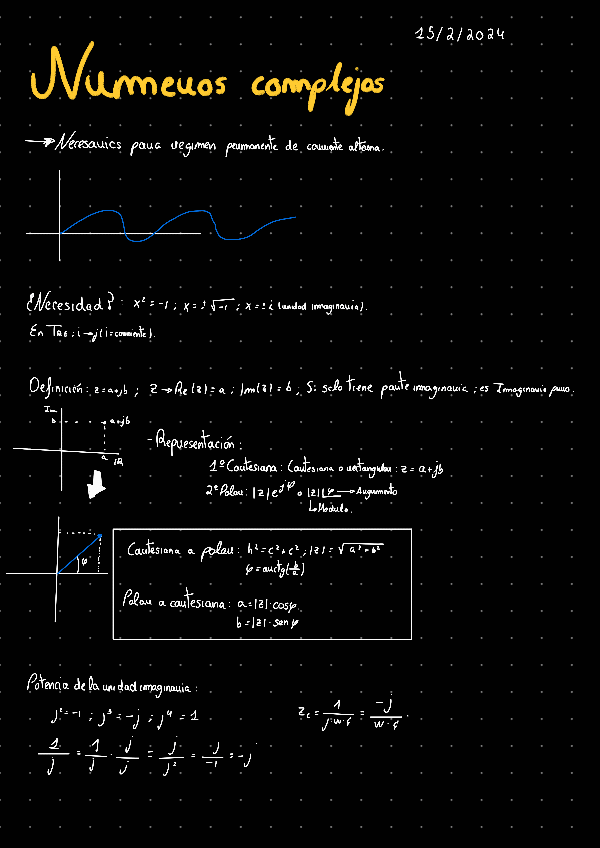 15/2/2024
Números complejos
→ Necesarios para regimen permanente de corriente alterna.
¿Necesidad? : x² = -1 ; x = ±√-1 ; x = ±i (unidad imaginaria).
En : i → j (i = corriente).
Definición: z = a+jb ; z → Re(z) = a ; Im(z) = b ; Si solo tiene parte imaginaria ; es Imaginario puro.
Im
b
a+jb
a
- Representación:
1º Cartesiana: Cartesiana o rectangular: z = a+jb
2º Polar: |z|e^jφ o |z|∠φ → Argumento
↳ Modulo.
φ
Cartesiana a polar: h² = c² + c² ; |z| = √a²+b²
φ = arctg(b/a)
Polar a cartesiana: a = |z|·cosφ
b = |z|·senφ
Potencia de la unidad imaginaria:
j² = -1 ; j³ = -j ; j⁴ = 1
Zc = 1/j·w·c = -j/w·c.
1/j = 1/j · j/j = j/j² = j/-1 = -j